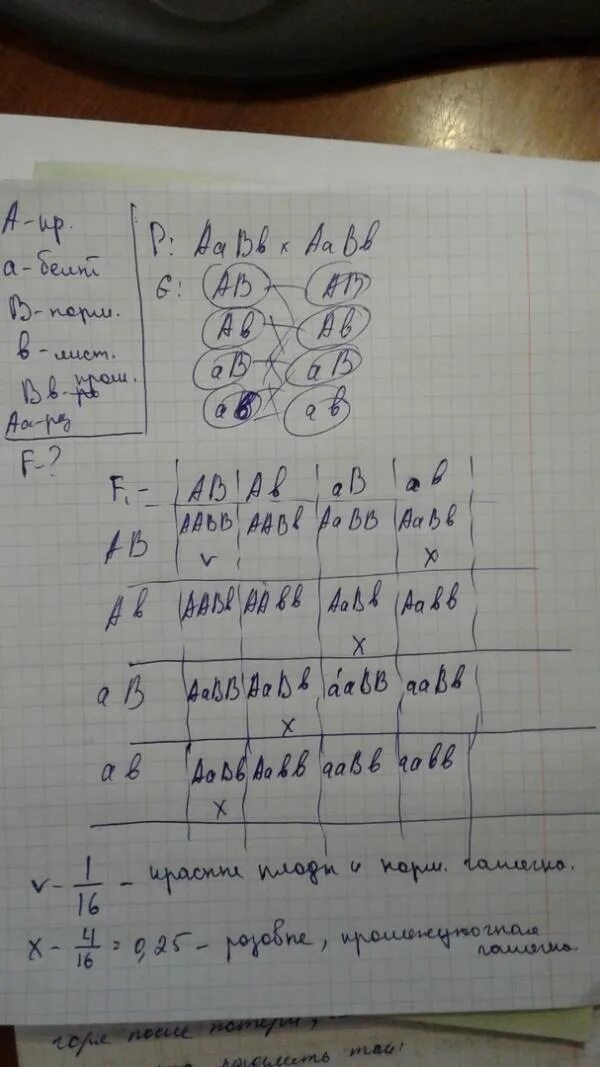 А-кр.
а-белт
В-норм.
в-лист.
Вв-пром.
Аа-роз
F-?
P: АаВв × АаВв
G: АВ АВ
Ав Ав
аВ аВ
ав ав
F₁- АВ Ав аВ ав
АВ ААВВ ААВв АаВВ АаВв
v x
Ав ААВв ААвв АаВв Аавв
x
аВ АаВВ АаВв ааВВ ааВв
x
ав АаВв Аавв ааВв аавв
x
v - 1/16 - красные плоды и норм. чашечка.
x - 4/16 = 0,25 - розовые, промежуточная
чашечка.
горя после потери,
таи!